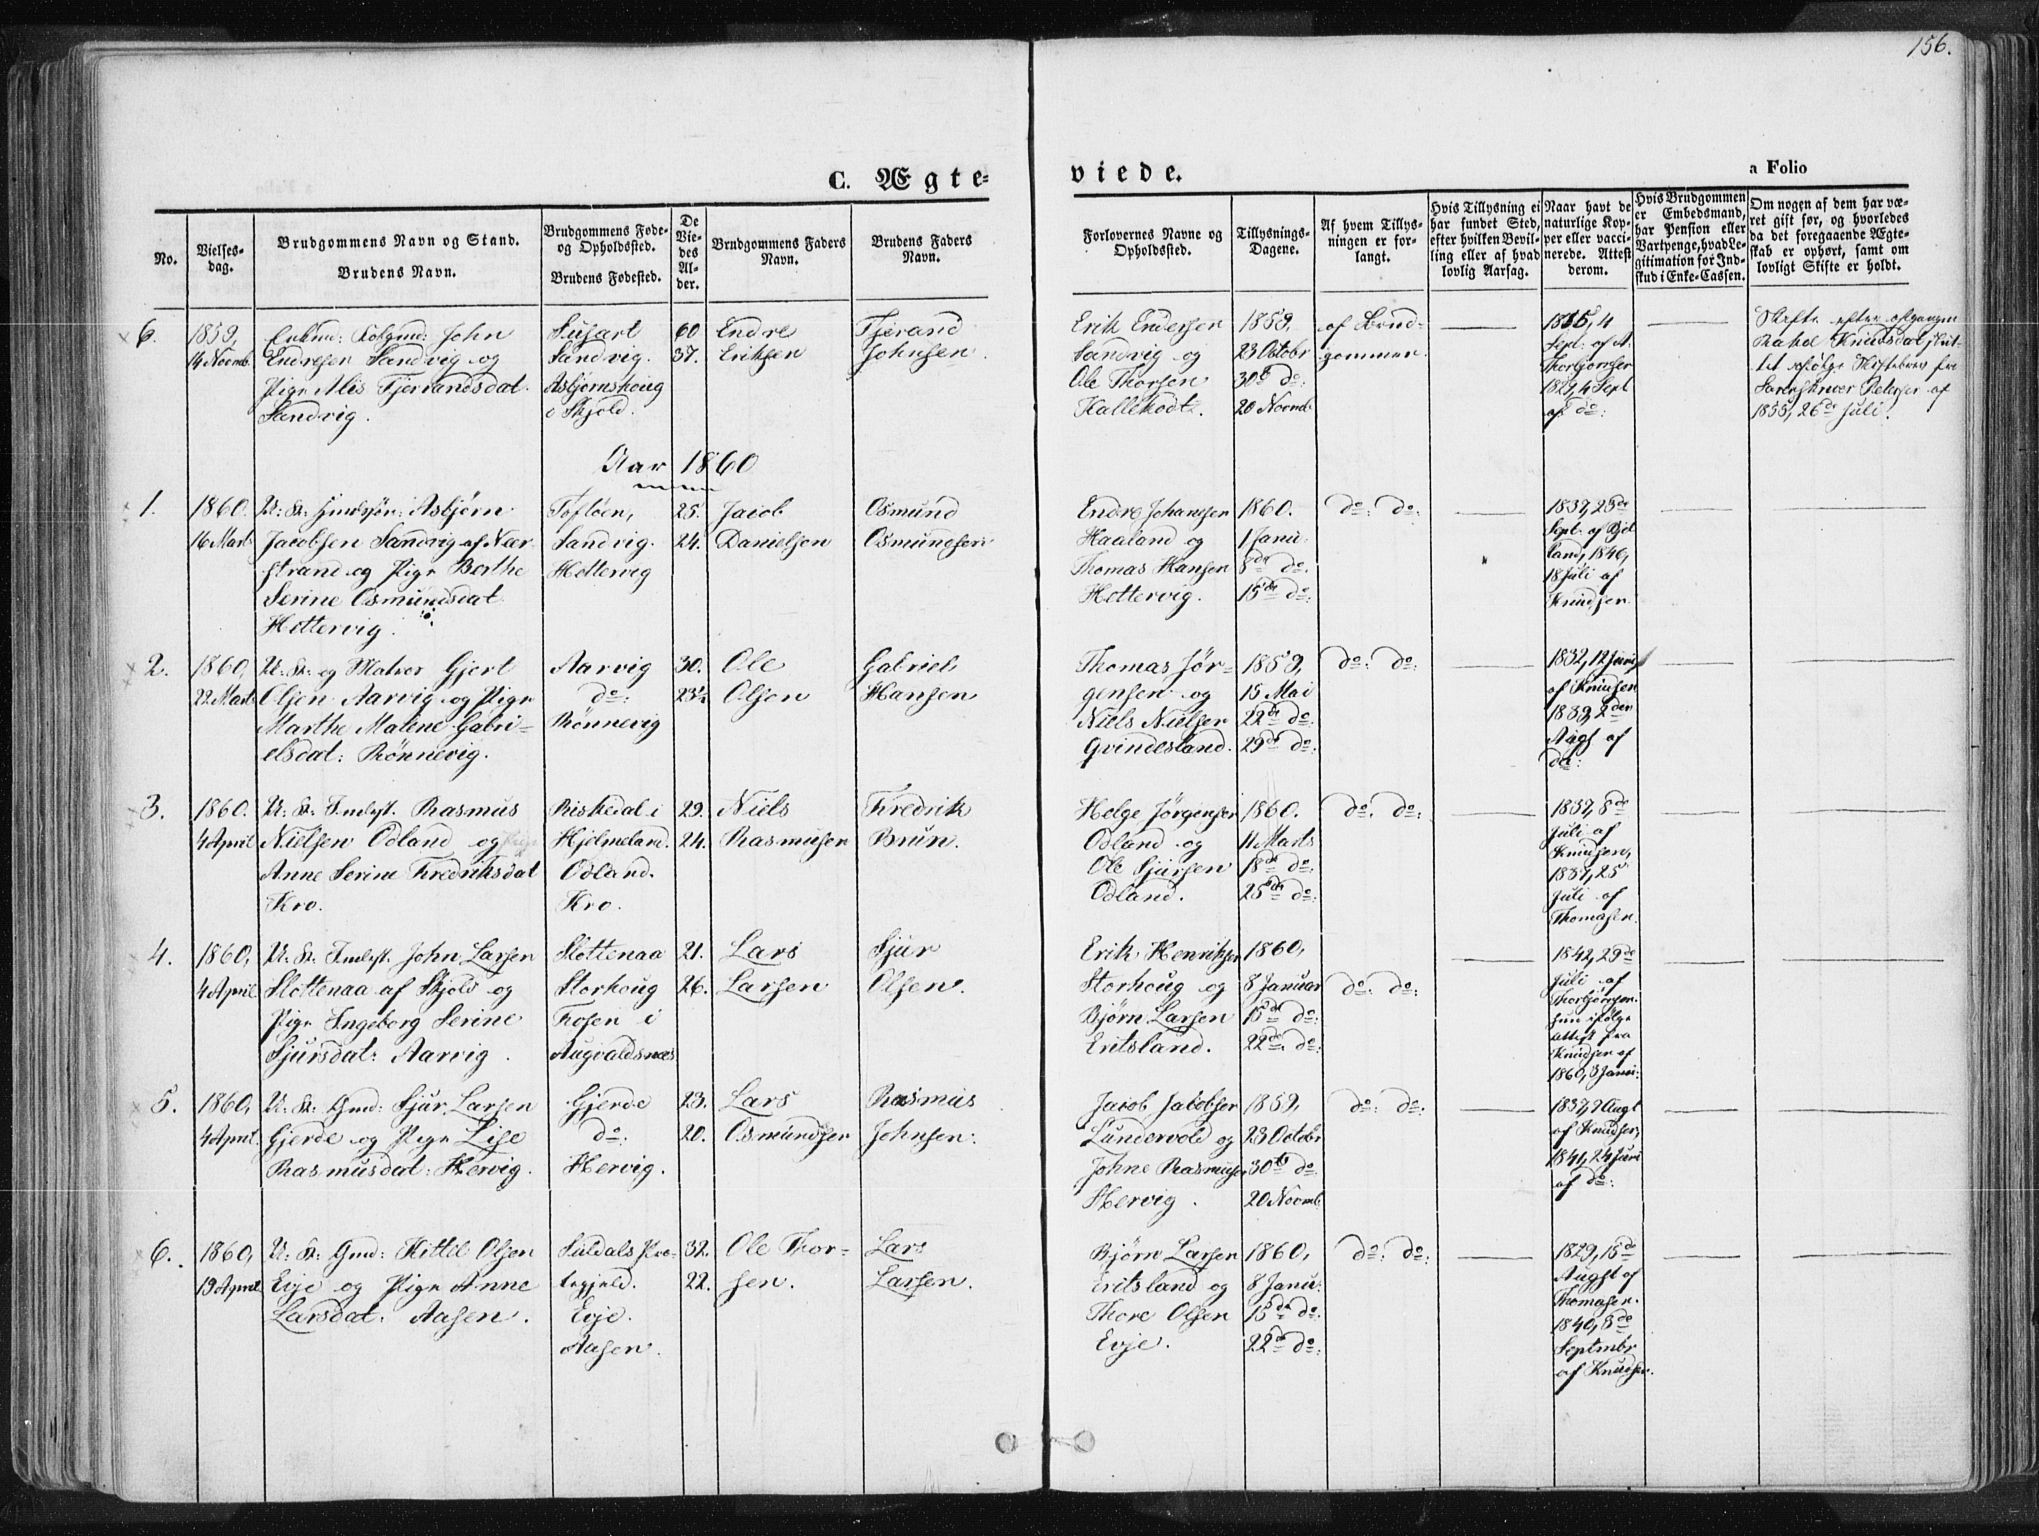 156.
C. Ægte-
viede.
a Folio
No.
Vielses-
dag.
Brudgommens Navn og Stand.
Brudens Navn.
Brudgommens Føde-
og Opholdssted.
Brudens Fødested.
De
Vie-
des
Al-
der.
Brudgommens Faders
Navn.
Brudens Faders
Navn.
Forlovernes Navne og
Opholdssted.
Tillysnings-
Dagene.
Af hvem Tillys-
ningen er for-
langt.
Hvis Tillysning ei
har fundet Sted,
efter hvilken Bevil-
ling eller af hvad
lovlig Aarsag.
Naar havt de
naturlige Kop-
per eller vacci-
nerede. Attest
derom.
Hvis Brudgommen
er Embedsmand,
har Pension eller
Vartpenge, hvad Le-
gitimation for Ind-
skud i Enke-Cassen.
Om nogen af dem har væ-
ret gift før, og hvorledes
da det foregaaende Ægte-
skab er ophørt, samt om
lovligt Skifte er holdt.
6.
1859,
14 Novmb.
John
Endresen Sandvig og
Pige Alis Tjerandsdat.
Sandvig.
Sandvig.
Asbjørnshoug
i Skjold.
60
37.
Endre
Eriksen
Tjerand
Johnsen.
Erik Endresen
Sandvig og
Ole Thorsen
Kallekodt.
1859.
23 Octobr
30te do:
20 Novmb
af Brud-
gommen.
Sept. af A.
Thorbjørnsen
1829, 4 Sept
af do:
Skifte efter afgangne
Rakel Knudsdat. slut-
tet ifølge Skiftebrev fra
Petersen af
1855, 26de Juli.
Aar 1860
1.
1860.
16 Marts
U: St: Asbjørn
Jacobsen Sandvig af Nær-
strand og Pige Berthe
Serine Osmundsdat.
Hettervig.
Tofløen,
Sandvig.
Hettervig
25.
24.
Jacob
Danielsen
Osmund
Osmundsen
Endre Johansen
Haaland og
Thomas Hansen
Hettervig.
1860.
1 Janu:
8de do.
15de do:
do: do:
1837, 23de
Sept. af
1846,
18 Juli af
Knudsen.
2.
1860,
22 Marts
U: St: og Matros Gjert
Olsen Aarvig og Pige
Marthe Malene Gabri-
elsdat: Rønnevig.
Aarvig
do:
Rønnevig
30.
23½
Ole
Olsen
Gabriel
Hansen
Thomas Jør-
gensen og
Niels Nielsen
Qvindesland.
1859,
15 Mai
22de do:
29de do:
do: do:
1832, 12 Juni
af Knudsen
1839, 2den
Augt af
do:
3.
1860.
4 April
U: St: Rasmus
Nielsen Odland og
Anne Serine Fredriksdat
Kro.
Riskedal i
Hjelmeland.
Odland.
Kro.
29.
24.
Niels
Rasmusen
Fredrik
Brun.
Helge Jørgensen
Odland og
Ole Sjursen
Odland.
1860.
11 Marts
18de do:
25de do:
do. do:
1837, 8de
Juli af
Knudsen,
1837, 25
Juli af
Thomasen.
4.
1860,
4 April.
U: St: John Larsen
Slottenaa af Skjold og
Pige Ingeborg Serine
Sjursdat: Aarvig.
Slottenaa
Storhoug
Frosen i
Augvaldsnæs
21.
26.
Lars
Larsen
Sjur
Olsen.
Erik Henriksen
Storhoug og
Bjørn Larsen
Eritsland.
1860,
8 Januar
15de do:
22de do:
do: do:
1842, 29de
Juli af
Thorbjørnsen.
hun ifølge
attest fra
Knudsen af
1860, 3 Janu:
5.
1860,
4 April.
U: St: Gmd: Sjur Larsen
Gjerde og Pige Lise
Rasmusdat: Hervig.
Gjerde
do:
Hervig.
23.
20.
Lars
Osmundsen
Rasmus
Johnsen.
Jacob Jacobsen
Lundervold og
Johne Rasmusen
Hervig.
1859,
23 Octobr
30te do:
20 Novmb.
do: do:
1837, 2 Augt
af Knudsen,
1841, 24 Juni
af do:
6.
1860,
19 April
U: St: Gmd: Kittil Olsen
Evje og Pige Anne
Larsdat. Aasen.
Suldals Præ-
stegjeld.
Evje.
Aasen.
32.
22.
Ole Thor-
sen.
Lars
Larsen.
Bjørn Larsen
Eritsland og
Thore Olsen
Evje.
1860,
8 Janu:
15de do:
22de do:
do: do:
1829, 15de
Augst af
Thomasen.
1840, 8de
Septmbr
af Knudsen.